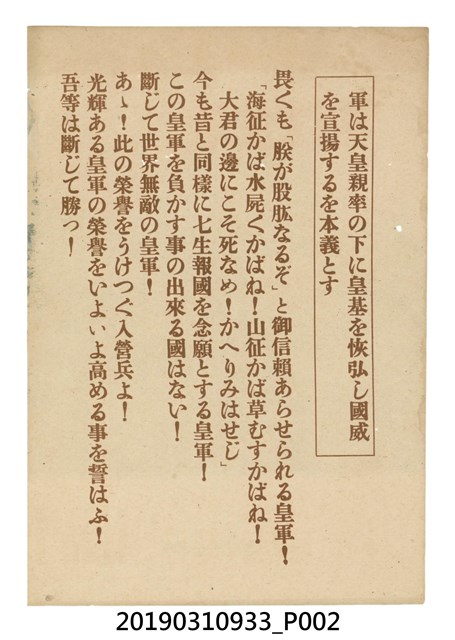 軍は天皇親率の下に皇基を恢弘し國威
を宣揚するを本義とす
畏くも「朕が股肱なるぞ」と御信賴あらせられる皇軍！
「海征かば水屍くかばね！山征かば草むすかばね！
大君の邊にこそ死なめ！かへりみはせじ」
今も昔と同樣に七生報國を念願とする皇軍！
この皇軍を負かす事の出來る國はない！
斷じて世界無敵の皇軍！
あゝ！此の榮譽をうけつぐ入營兵よ！
光輝ある皇軍の榮譽をいよいよ高める事を誓はふ！
吾等は斷じて勝つ！
20190310933_P002